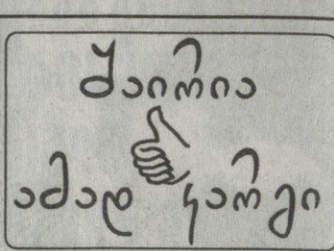 შაირია
ამად კარგი